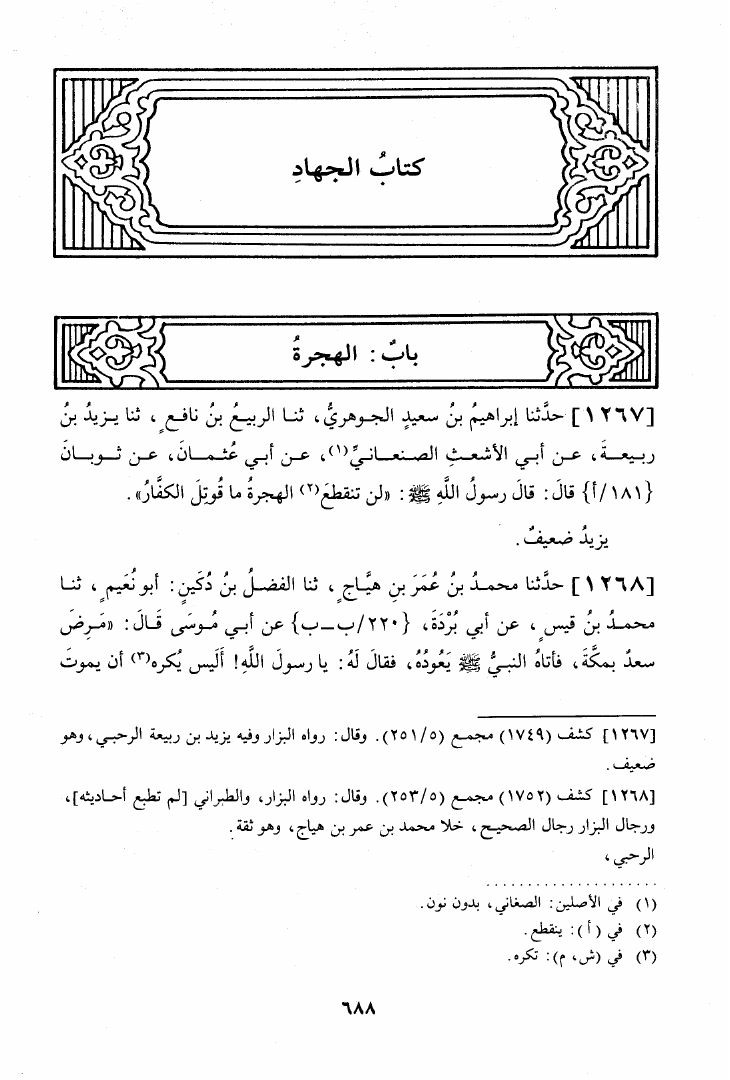 كتابُ الجهادِ
بابٌ: الهجرةُ
[١٢٦٧] حدَّثنا إبراهيمُ بنُ سعيدٍ الجوهريُّ، ثنا الربيعُ بنُ نافعٍ، ثنا يزيدُ بنُ
ربيعةَ، عن أبي الأشعثِ الصنعانيِّ(١)، عن أبي عُثمانَ، عن ثوبانَ
{١٨١/أ} قالَ: قالَ رسولُ اللَّهِ ﷺ: «لن تنقطعَ(٢) الهجرةُ ما قُوتِلَ الكفَّارُ».
يزيدُ ضعيفٌ.
[١٢٦٨] حدَّثنا محمدُ بنُ عُمَرَ بنِ هيَّاجٍ، ثنا الفضلُ بنُ دُكَينٍ: أبو نُعَيمٍ، ثنا
محمدُ بنُ قيسٍ، عن أبي بُرْدَةَ، {٢٢٠/ب-ب} عن أبي مُوسَى قَالَ: «مَرِضَ
سعدٌ بمكَّةَ، فأتاهُ النبيُّ ﷺ يَعُودُهُ، فقالَ لَهُ: يا رسولَ اللَّهِ! أَلَيس يُكره(٣) أن يموتَ
[١٢٦٧] كشف (١٧٤٩) مجمع (٢٥١/٥). وقال: رواه البزار وفيه يزيد بن ربيعة الرحبي، وهو
ضعيف.
[١٢٦٨] كشف (١٧٥٢) مجمع (٢٥٣/٥). وقال: رواه البزار، والطبراني [لم تطبع أحاديثه]،
ورجال البزار رجال الصحيح، خلا محمد بن عمر بن هياج، وهو ثقة.
الرحبي،
(١) في الأصلين: الصغاني، بدون نون.
(٢) في (أ): ينقطع.
(٣) في (ش، م): تكره.
٦٨٨